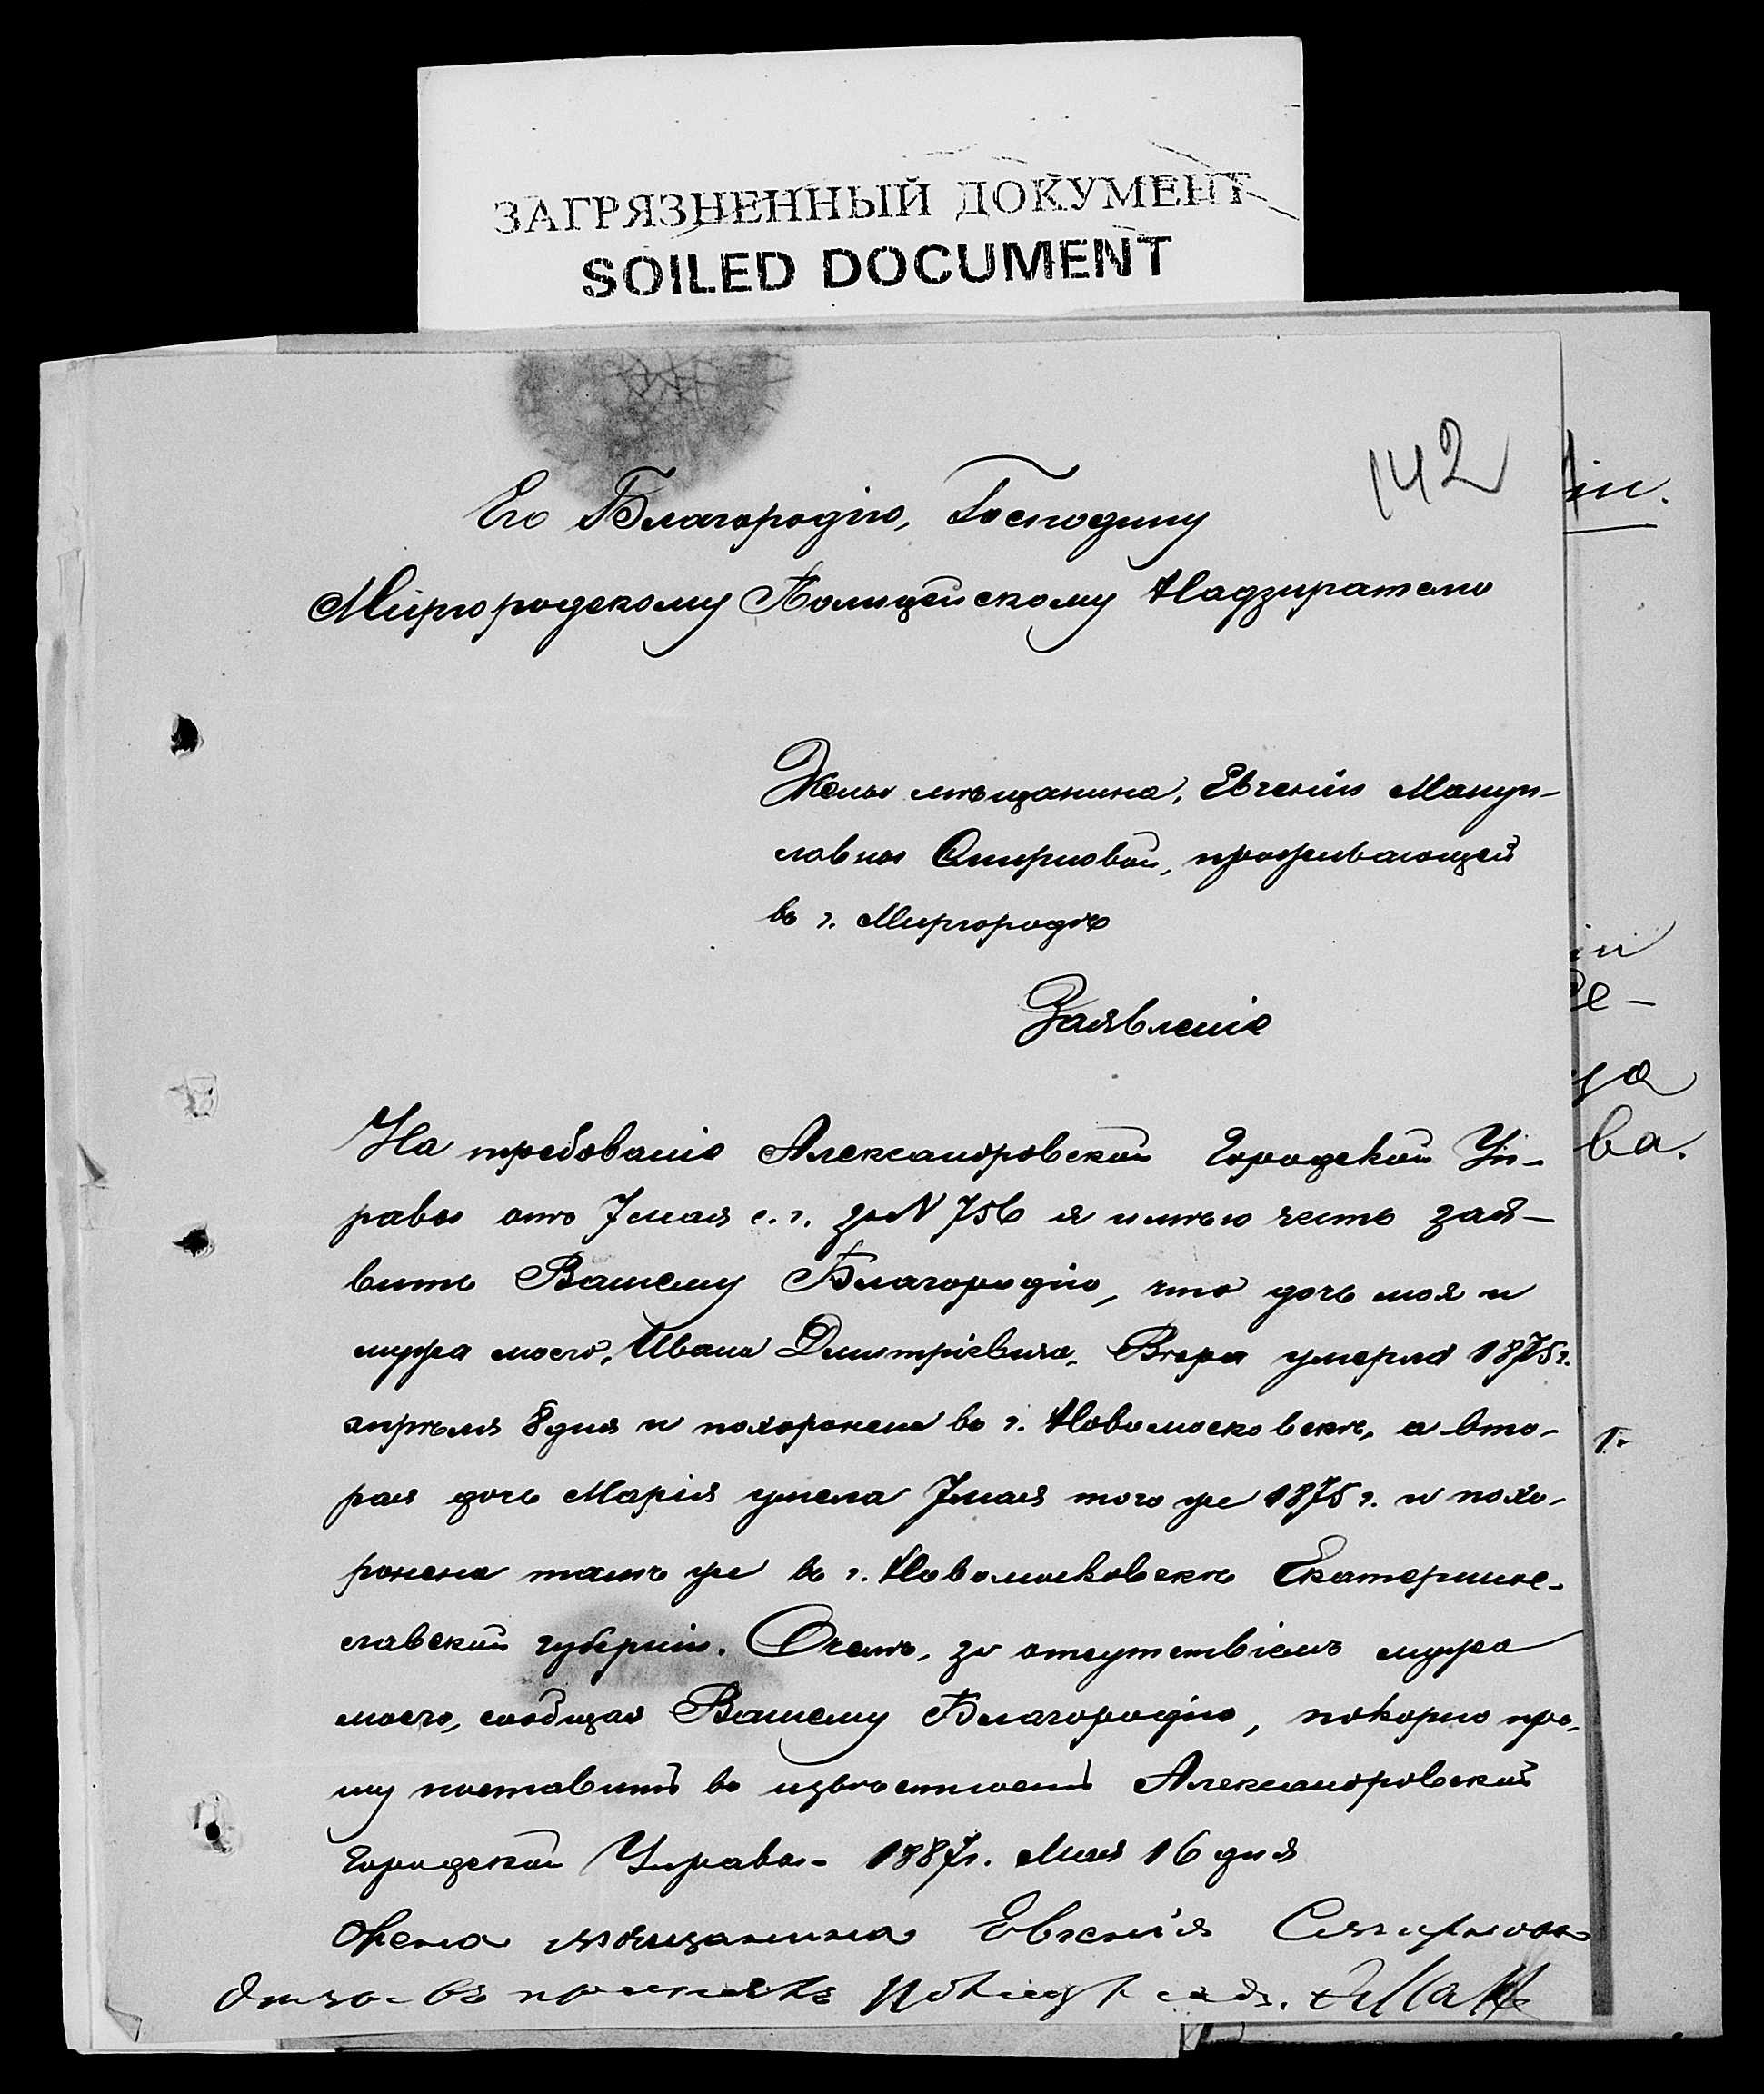 ЗАГРЯЗНЕННЫЙ ДОКУМЕНТ
SOILED DOCUMENT
142
Его Благородію, Господину
Миргородскому Полицейскому Надзирателю
Жены мѣщанина, Евгеніи Мануи-
ловны Смирновой, проживающей
въ г. Миргородѣ
Заявленіе
На требованіе Александровской Городской Уп-
равы отъ 7 мая с. г. за N 756 я имѣю честь зая-
вить Вашему Благородію, что дочь моя и
мужа моего, Ивана Дмитріевича, Вѣра умерла 1875 г.
апрѣля 8 дня и похоронена въ г. Новомосковскѣ, а вто-
рая дочь Марія умела 7 мая того же 1875 г. и похо-
ронена тамъ же въ г. Новомосковскѣ Екатерино-
славской губерніи. О чемъ, за отсутствіемъ мужа
моего, сообщая Вашему Благородію, покорно про-
шу поставить въ извѣстность Александровской
Городской Управы. 1887 г. Мая 16 дня
Жена мѣщанина Евгенія Смирнова